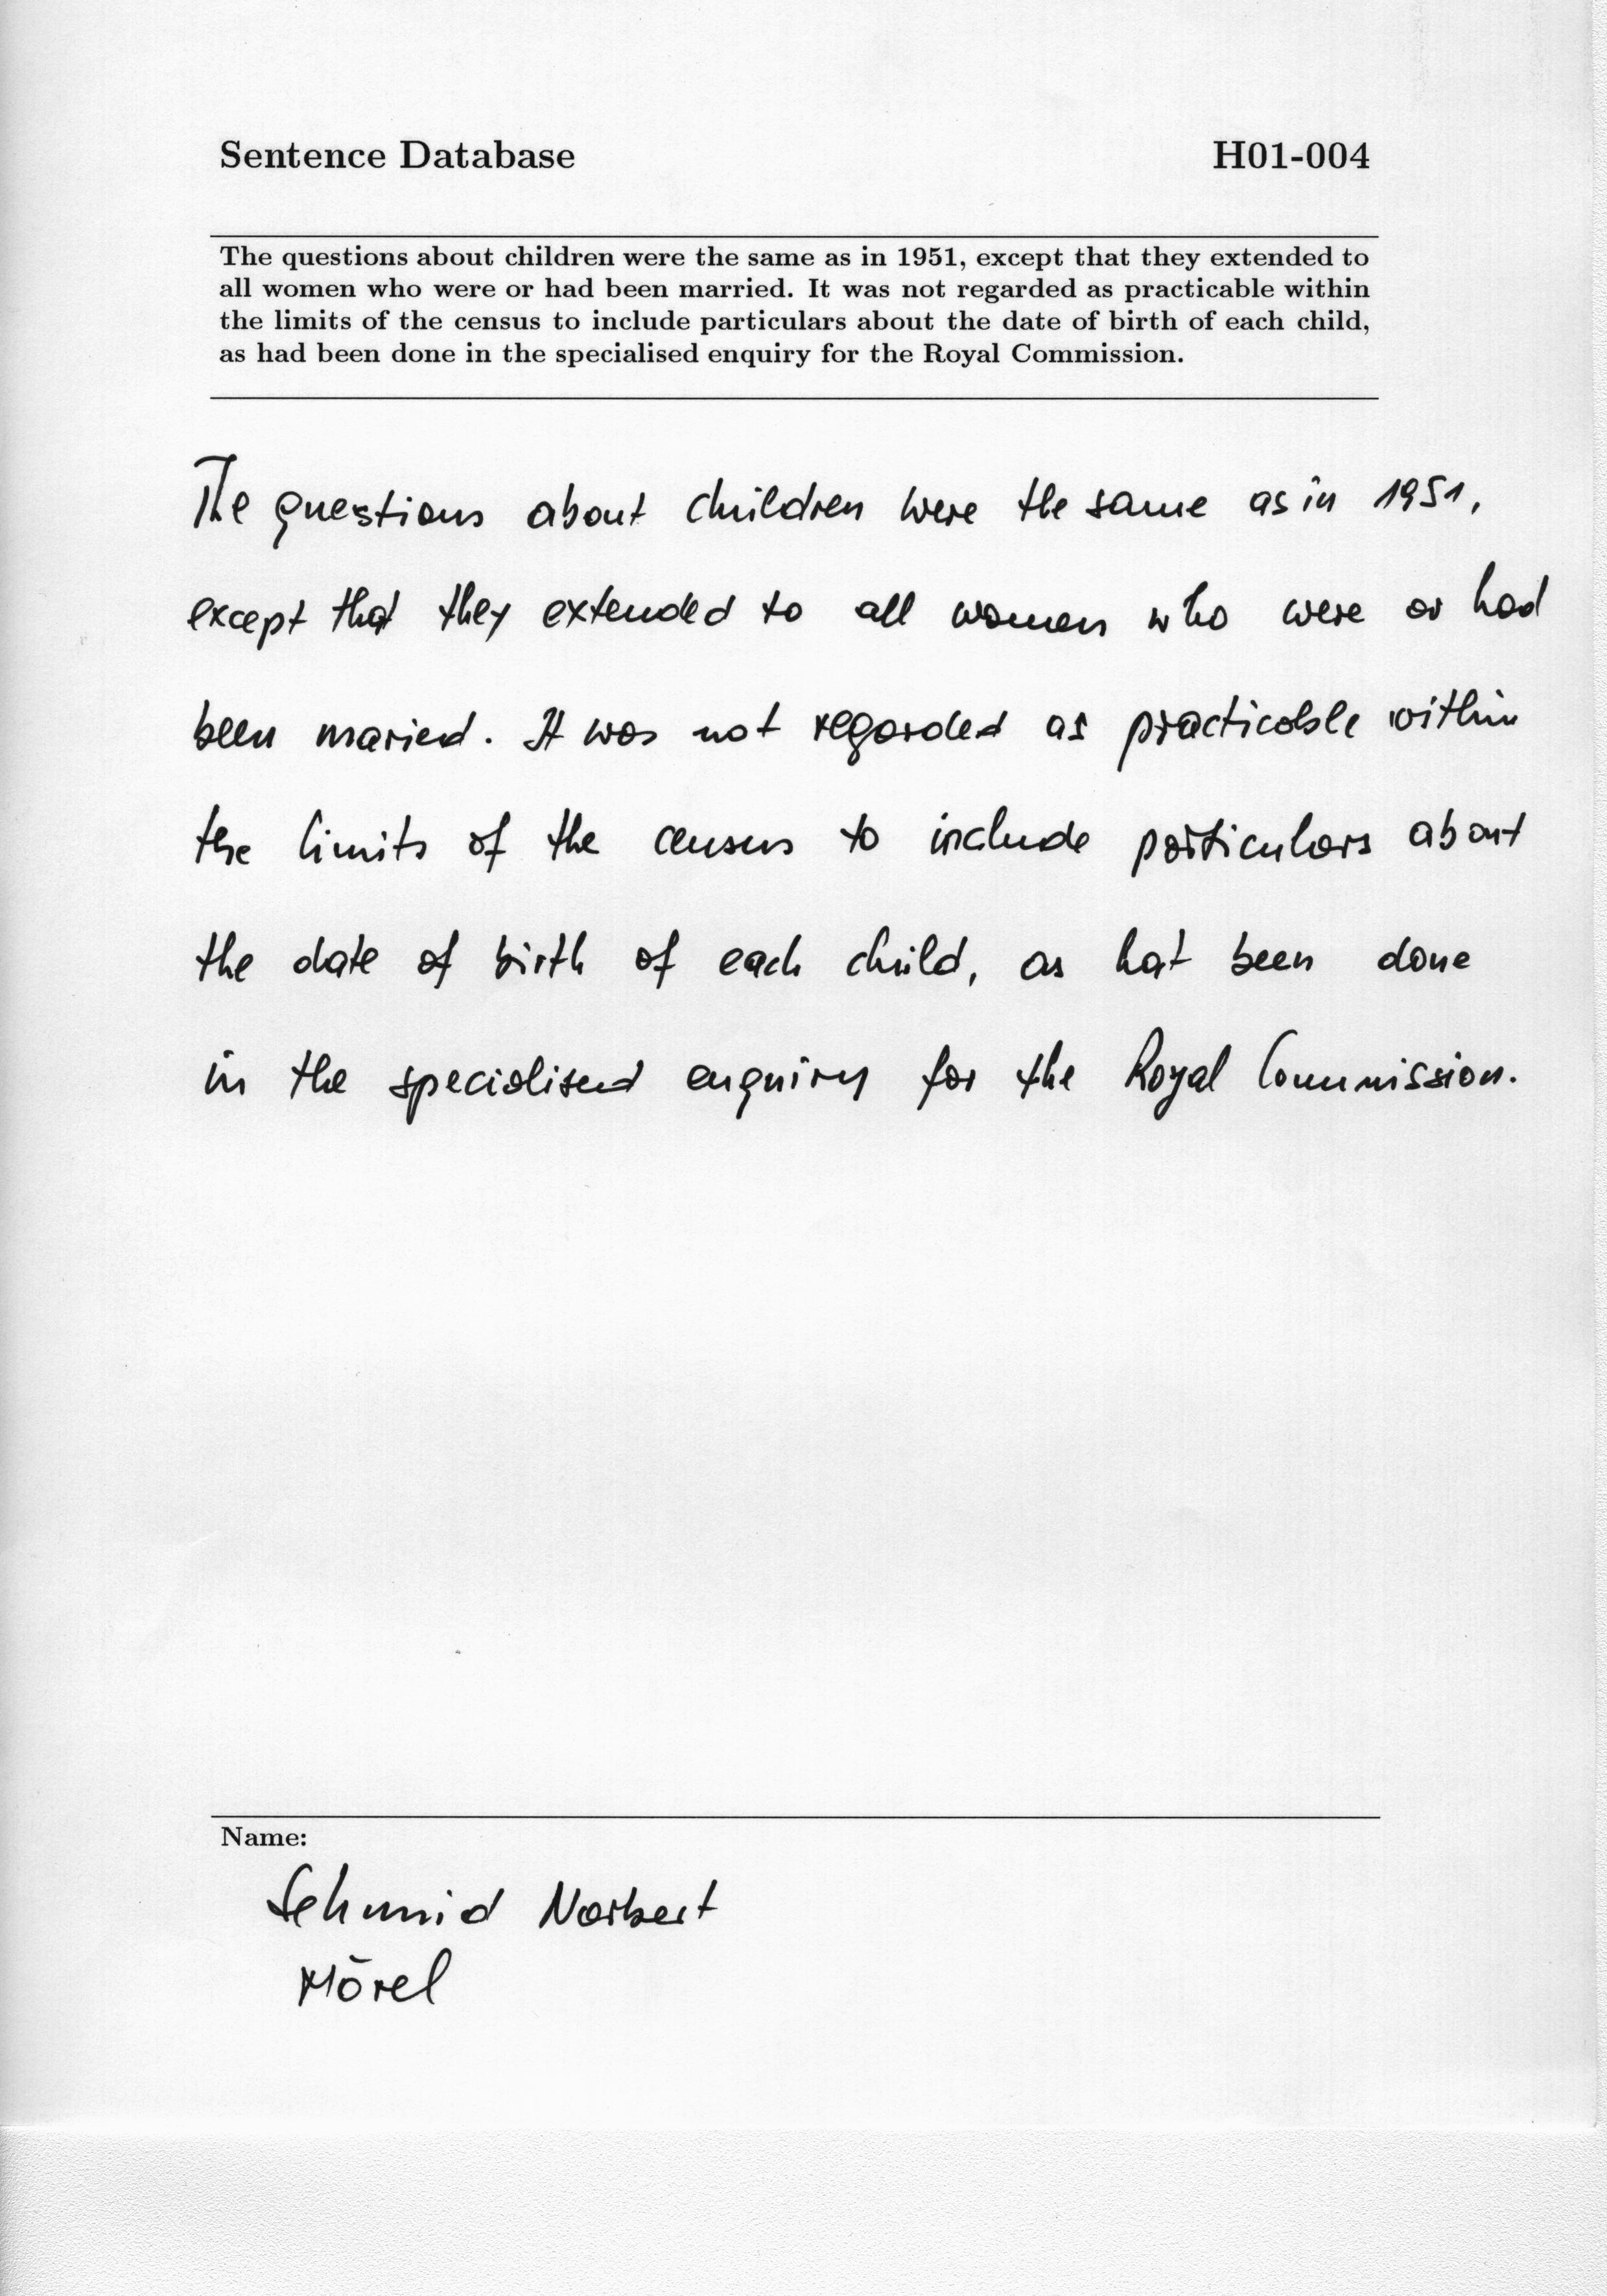 Sentence Database H01-004
The questions about children were the same as in 1951, except that they extended to
all women who were or had been married. It was not regarded as practicable within
the limits of the census to include particulars about the date of birth of each child,
as had been done in the specialised enquiry for the Royal Commission.
The questions about children were the same as in 1951,
except that they extended to all women who were or had
been maried. It was not regarded as practicable within
the limits of the census to include particulars about
the date of birth of each child, as hat been done
in the specialised enquiry for the Royal Commission.
Name:
Schmid Norbert
Mörel